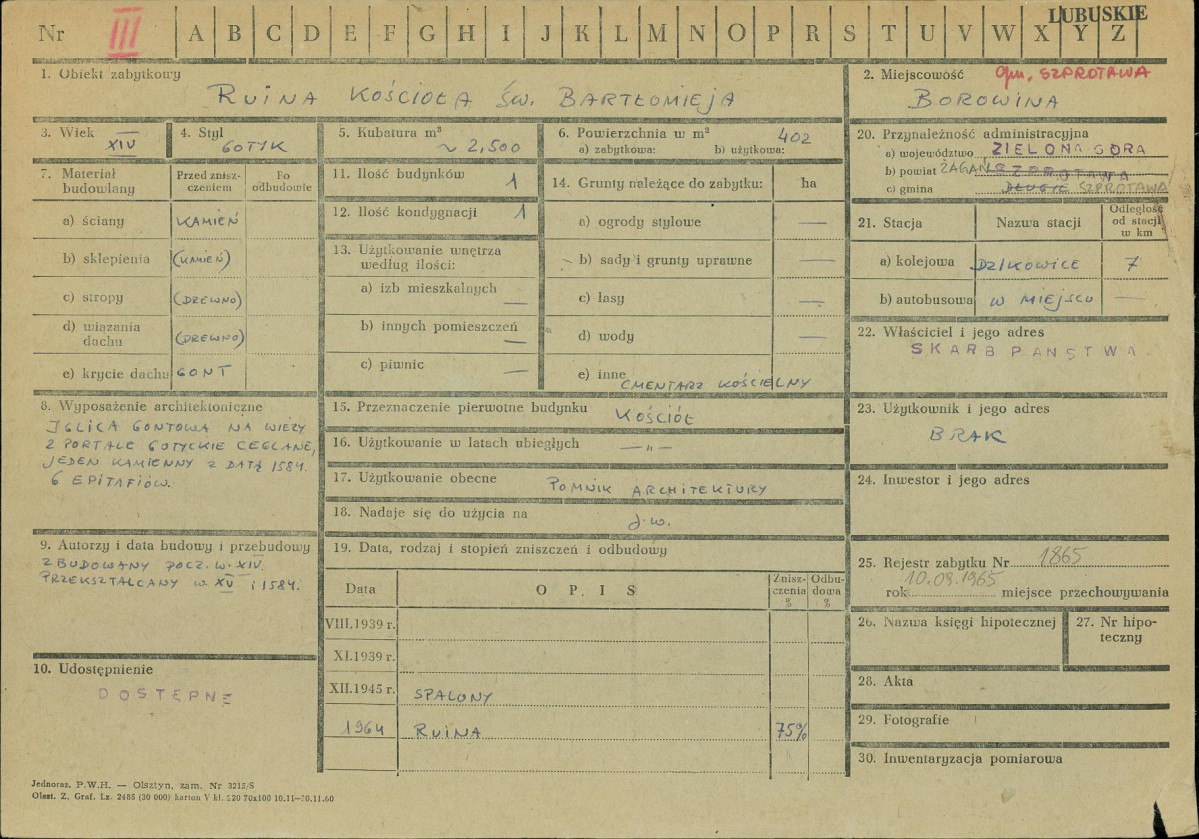 LUBUSKIE
Nr III A B C D E F G H I J K L M N O P R S T U V W X Y Z
1. Obiekt zabytkowy
RUINA KOŚCIOŁA ŚW. BARTŁOMIEJA
2. Miejscowość gm. SZPROTAWA
BOROWINA
3. Wiek
XIV
4. Styl
GOTYK
5. Kubatura m³
~ 2,500
6. Powierzchnia w m² 402
a) zabytkowa: b) użytkowa:
20. Przynależność administracyjna
a) województwo ZIELONA GÓRA
b) powiat ŻAGAŃ SZPROTAWA
c) gmina DŁUGIE SZPROTAWA
7. Materiał budowlany
Przed zniszczeniem
Po odbudowie
a) ściany KAMIEŃ
b) sklepienia (KAMIEŃ)
c) stropy (DREWNO)
d) wiązania dachu (DREWNO)
e) krycie dachu GONT
11. Ilość budynków 1
12. Ilość kondygnacji 1
13. Użytkowanie wnętrza
według ilości:
a) izb mieszkalnych —
b) innych pomieszczeń —
c) piwnic —
14. Grunty należące do zabytku: ha
a) ogrody stylowe —
b) sady i grunty uprawne —
c) lasy —
d) wody —
e) inne CMENTARZ KOŚCIELNY
21. Stacja
Nazwa stacji
Odległość
od stacji
w km
a) kolejowa DZIKOWICE 7
b) autobusowa W MIEJSCU —
22. Właściciel i jego adres
SKARB PAŃSTWA
8. Wyposażenie architektoniczne
IGLICA GONTOWA NA WIEŻY
2 PORTALE GOTYCKIE CEGLANE,
JEDEN KAMIENNY Z DATĄ 1584.
6 EPITAFIÓW.
15. Przeznaczenie pierwotne budynku KOŚCIÓŁ
16. Użytkowanie w latach ubiegłych — „ —
17. Użytkowanie obecne POMNIK ARCHITEKTURY
18. Nadaje się do użycia na J.W.
23. Użytkownik i jego adres
BRAK
24. Inwestor i jego adres
9. Autorzy i data budowy i przebudowy
ZBUDOWANY POCZ. W. XIV.
PRZEKSZTAŁCANY W. XV i 1584.
19. Data, rodzaj i stopień zniszczeń i odbudowy
Data
O P I S
Zniszczenia %
Odbudowa %
VIII.1939 r.
XI.1939 r.
XII.1945 r. SPALONY
1964 RUINA 75%
25. Rejestr zabytku Nr 1865
rok 10.09.1965 miejsce przechowywania
26. Nazwa księgi hipotecznej
27. Nr hipoteczny
10. Udostępnienie
DOSTĘPNE
28. Akta
29. Fotografie
30. Inwentaryzacja pomiarowa
Jednoraz. P.W.H. — Olsztyn, zam. Nr 3215/S
Olszt. Z. Graf. Lz. 2485 (30 000) karton V kl. 220 70x100 10.11—30.11.60